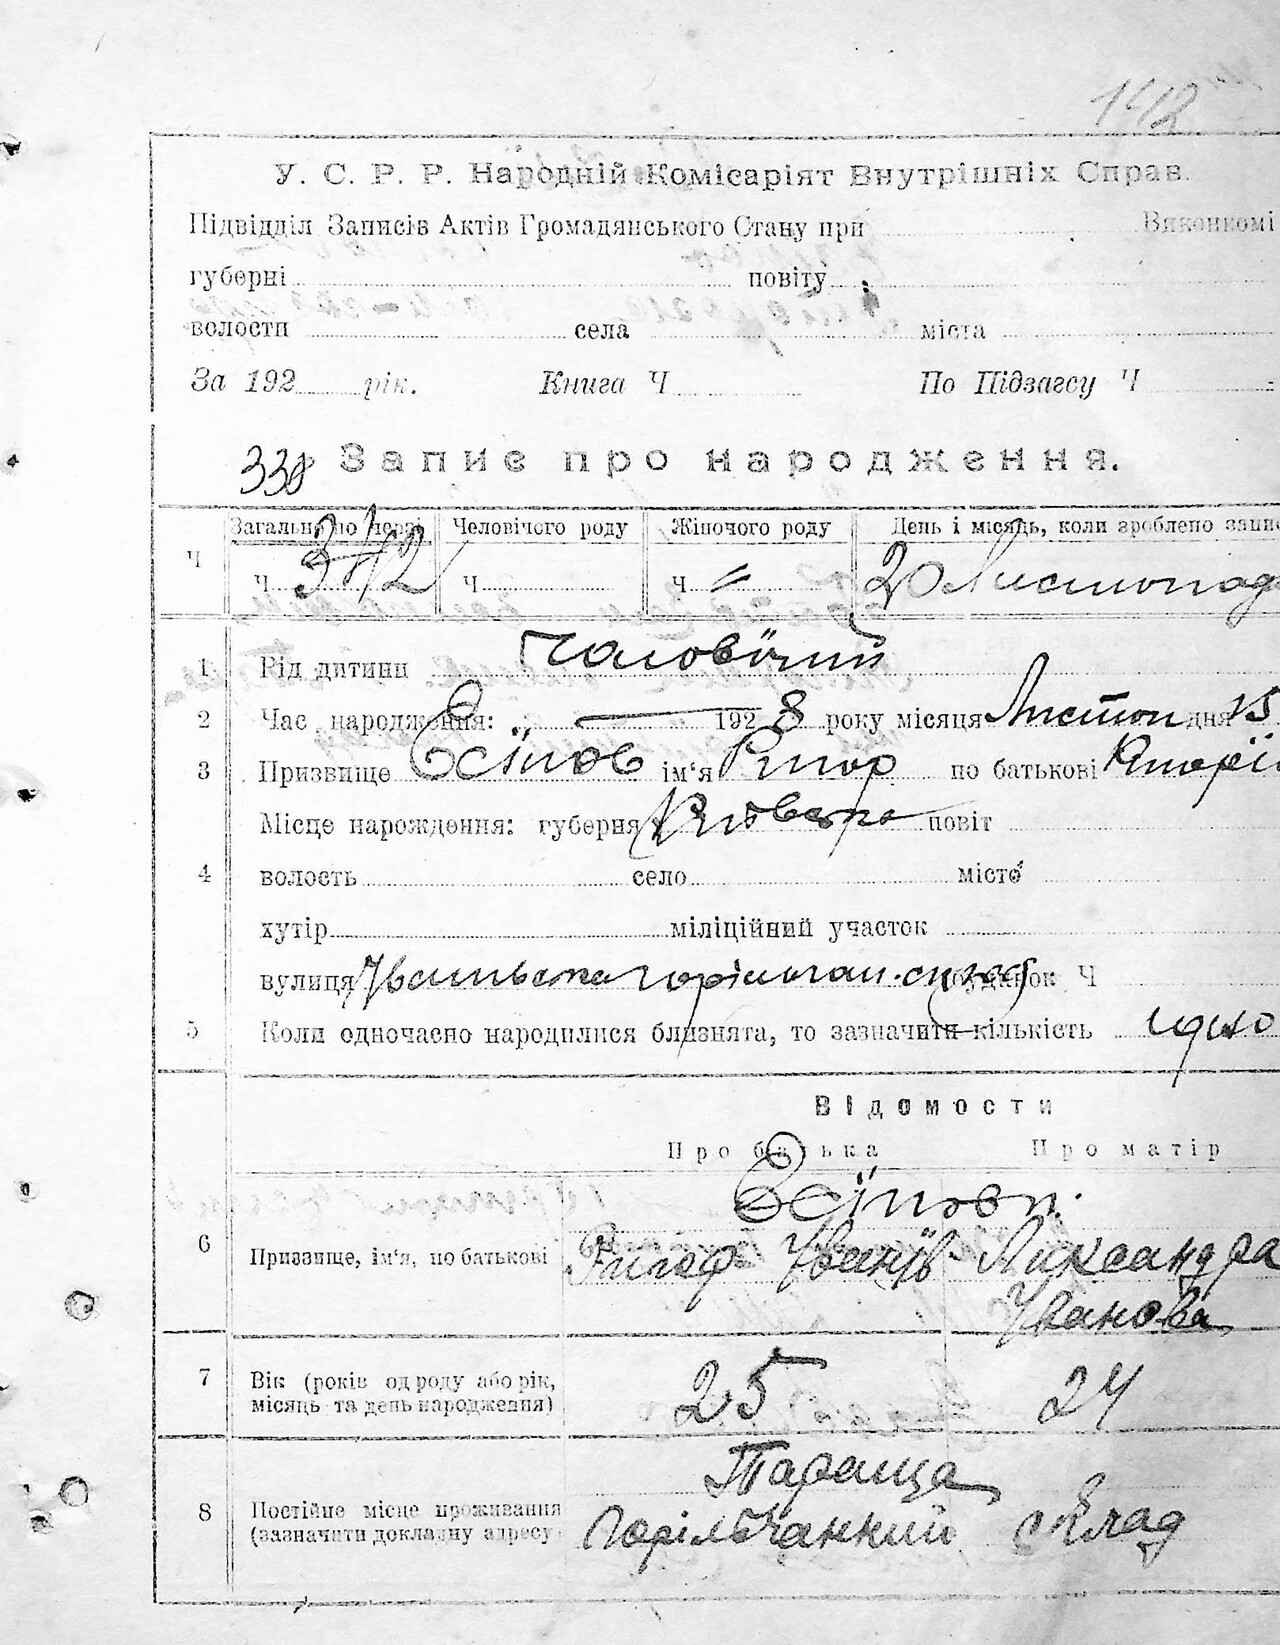 142
У. С. Р. Р. Народній Комісаріят Внутрішніх Справ.
Підвідділ Записів Актів Громадянського Стану при Виконкомі
губерні повіту
волости села міста
За 192 рік. Книга Ч По Підзагсу Ч
338 Запис про народження.
Загально по пер Человічого роду Жіночого роду День і місяць, коли зроблено запис
Ч Ч 342 Ч Ч 20 Листопада
1 Рід дитини Чаловічий
2 Час народження: 1928 року місяця Листоп дня 15
3 Призвище Єсіпов ім'я по батькові
Місце народження: губерня повіт
4 волость село місто
хутір міліційний участок
вулиця будинок Ч
5 Коли одночасно народилися близнята, то зазначити кількість одно
Відомости
Про батька Про матір
Єсіпови
6 Призвище, ім'я, по батькові Іванів Ликсандра
Іванова
7 Вік (років од роду або рік, 25 24
місяць та день народження)
Тараща
8 Постійне місце проживання Горільчанний склад
(зазначити докладну адресу)